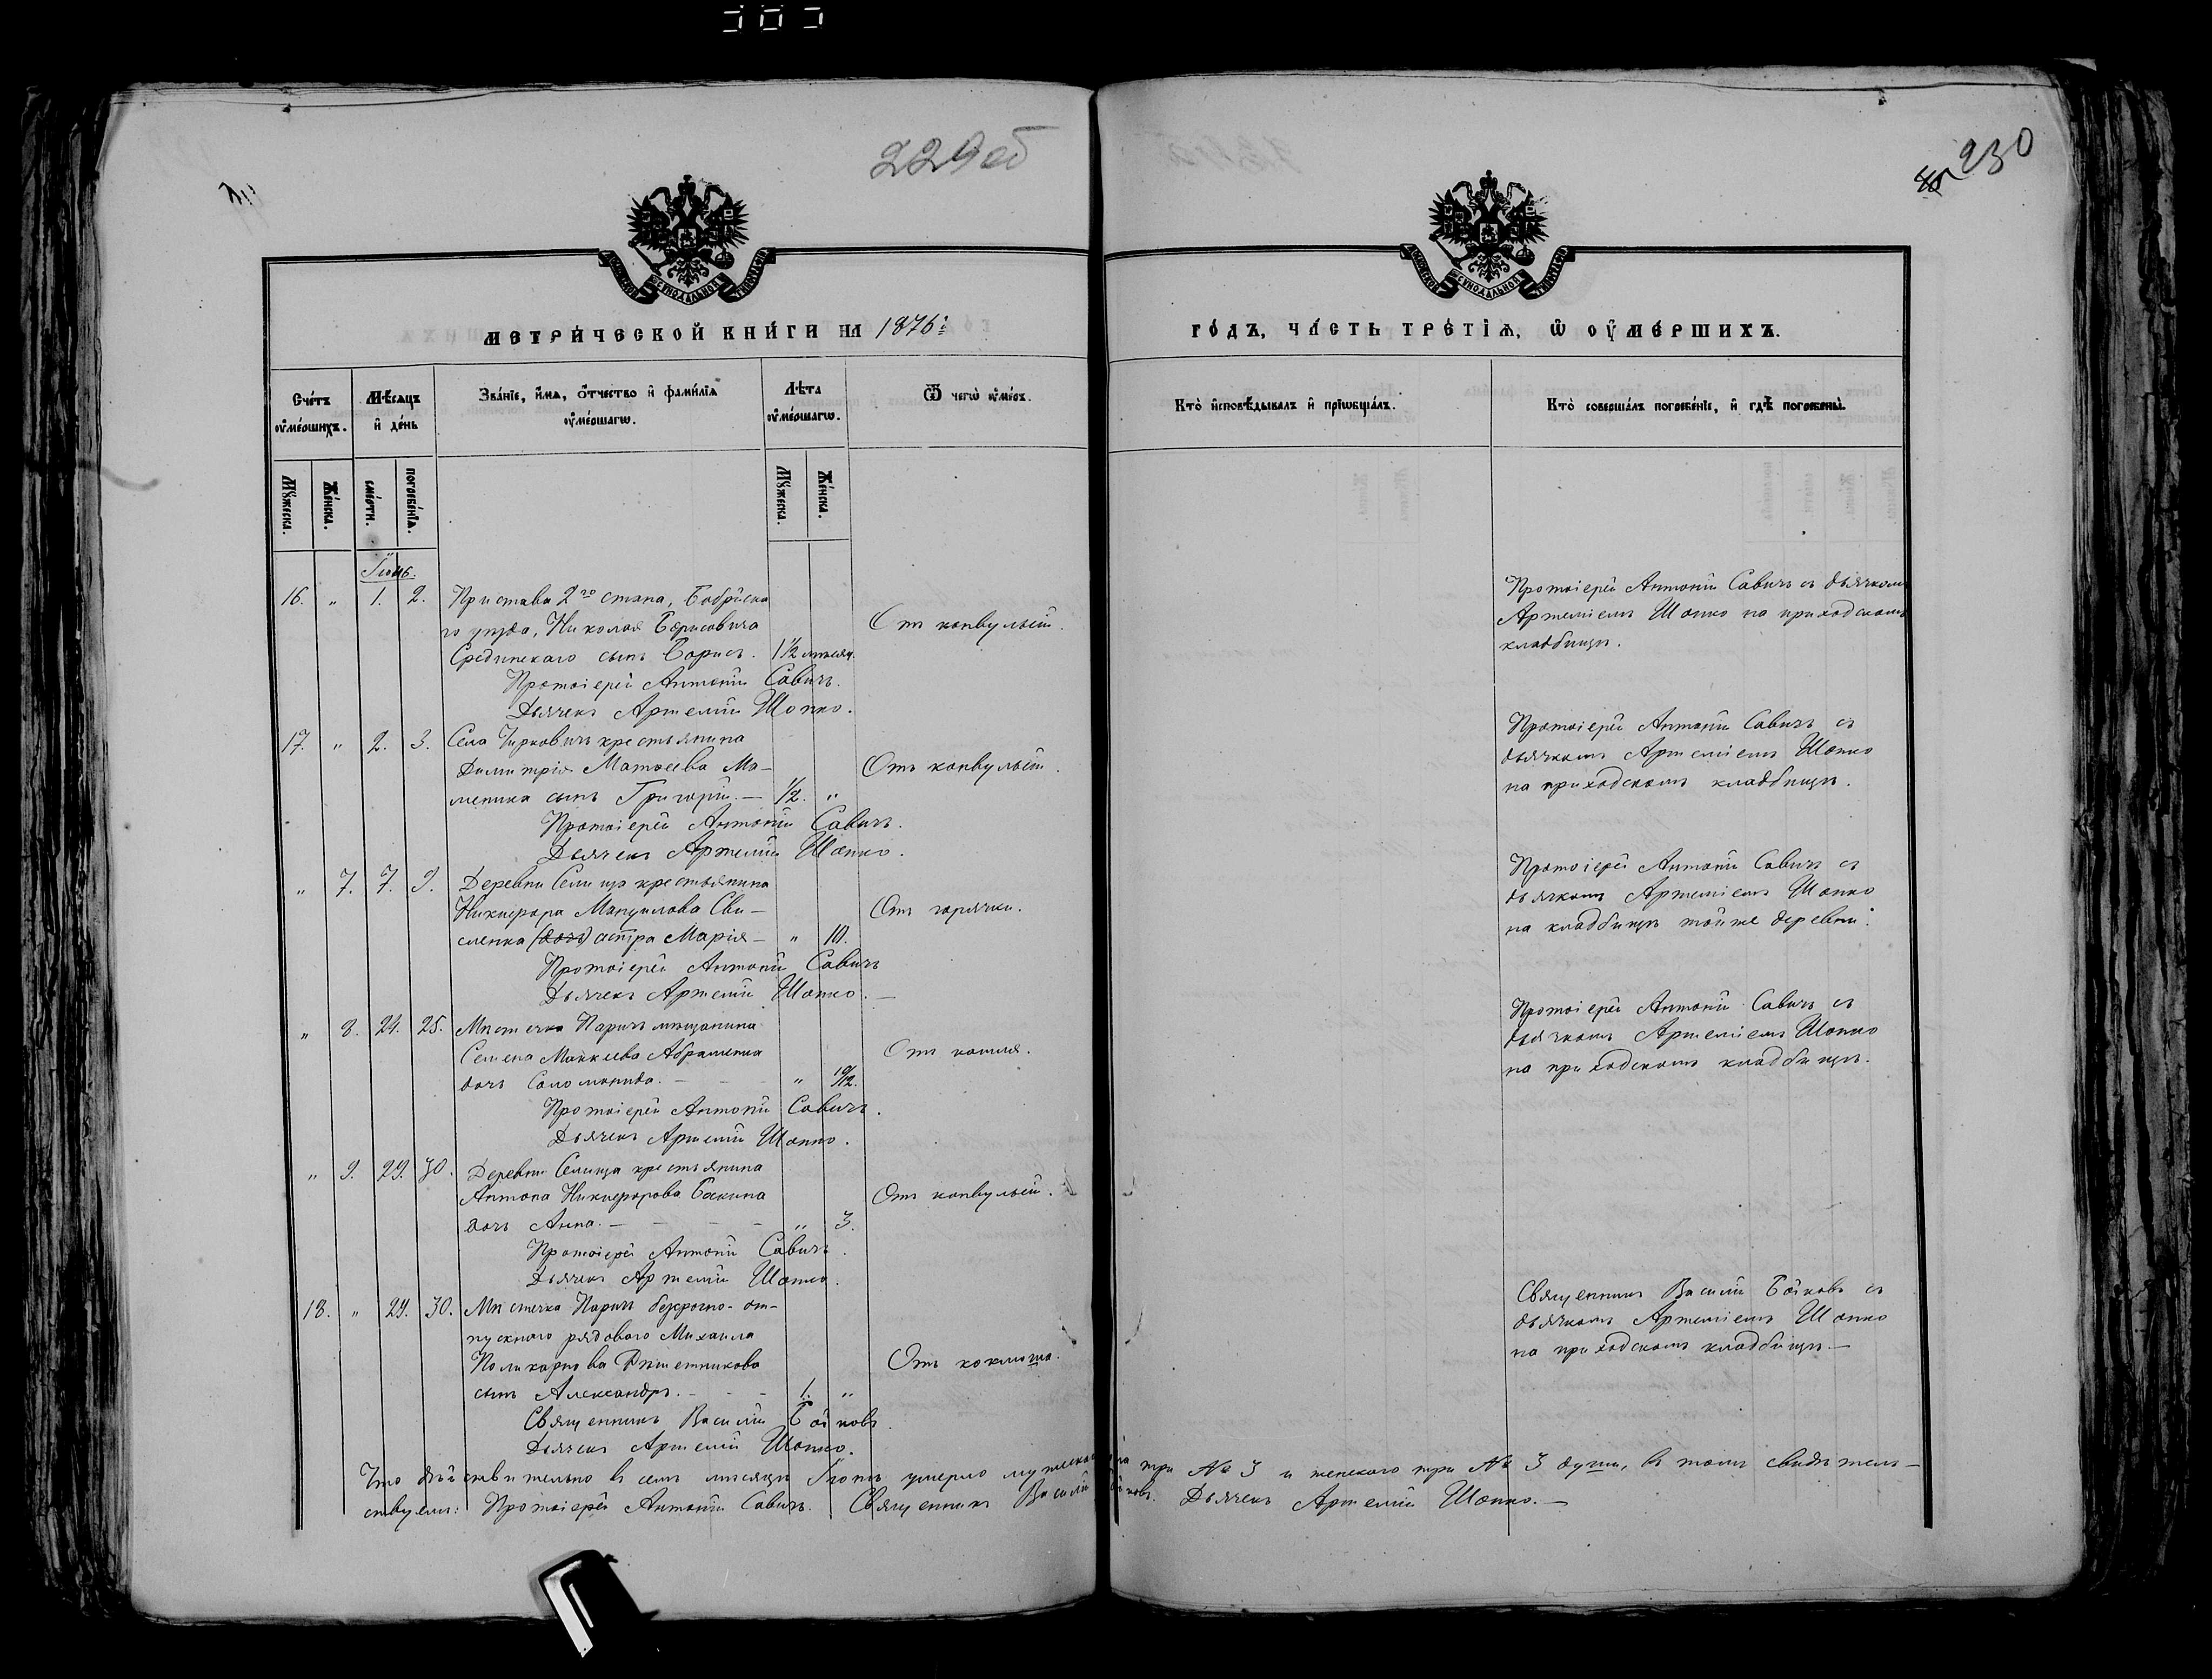 229об
230
МЕТРИЧЕСКОЙ КНИГИ НА 1876й
ГОДЪ, ЧАСТЬ ТРЕТІЯ, Ѿ ОУМЕРШИХЪ.
Счетъ оумершихъ.
Мѣсяцъ и день
Званіе, имя, отчество и фамилія оумершагѡ.
Лѣта оумершагѡ.
Ѿ чегѡ оумеръ.
Кто исповѣдывалъ и пріѡбщалъ.
Кто совершалъ погребеніе, и гдѣ погребены.
Мужеска.
Женска.
смерти.
погребенія.
Мужеска.
Женска.
Іюнь.
16. " 1. 2. Пристава 2го стана, Бобруйска
го уѣзда, Николая Борисовича
Срединскаго сынъ Борисъ. 1½ мѣсяц.
От конвульсій.
Протоіерей Антоній Савичъ съ дьячкомъ
Артеміемъ Шопко на приходскомъ
кладбищѣ.
Протоіерей Антоній Савичъ.
Дьячекъ Артемій Шопко.
17. " 2. 3. Села Чирковичъ крестьянина
Димитрія Матѳеева Ма-
меника сынъ Григорій. — ½. "
Отъ конвульсій.
Протоіерей Антоній Савичъ съ
дьячкомъ Артеміемъ Шопко
на приходскомъ кладбищѣ.
Протоіерей Антоній Савичъ.
Дьячекъ Артемій Шопко.
" 7. 7. 9. Деревни Селища крестьянина
Никифора Мануилова Сви-
сленка (дочь) сестра Марія — " 10.
Отъ горячки.
Протоіерей Антоній Савичъ съ
дьячкомъ Артеміемъ Шопко
на кладбищѣ той же деревни.
Протоіерей Антоній Савичъ
Дьячекъ Артемій Шопко. —
" 8. 24. 25. Мѣстечка Паричъ мѣщанина
Семена Моккеева Абраменка
дочь Соломонида. — " 10/12.
Отъ кашля.
Протоіерей Антоній Савичъ съ
дьячкомъ Артеміемъ Шопко
на приходскомъ кладбищѣ.
Протоіерей Антоній Савичъ.
Дьячекъ Артемій Шопко.
" 9. 29. 30. Деревни Селища крестьянина
Антона Никифорова Баскина
дочь Анна. — " 3.
Отъ конвульсій.
Протоіерей Антоній Савичъ.
Дьячекъ Артемій Шопко.
18. " 29. 30. Мѣстечка Паричъ безсрочно-от-
пускнаго рядоваго Михаила
Поликарпова Рѣшетникова
сынъ Александръ. — 1. "
Отъ коклюша.
Священникъ Василій Бойковъ съ
дьячкомъ Артеміемъ Шопко
на приходскомъ кладбищѣ. —
Священникъ Василій Бойковъ.
Дьячекъ Артемій Шопко.
Что дѣйствительно въ семъ мѣсяцѣ Іюнѣ умерло мужеска пола три № 3 и женского три № 3 души, въ томъ свидѣтель-
ствуемъ: Протоіерей Антоній Савичъ. Священникъ Василій Бойковъ. Дьячекъ Артемій Шопко. —